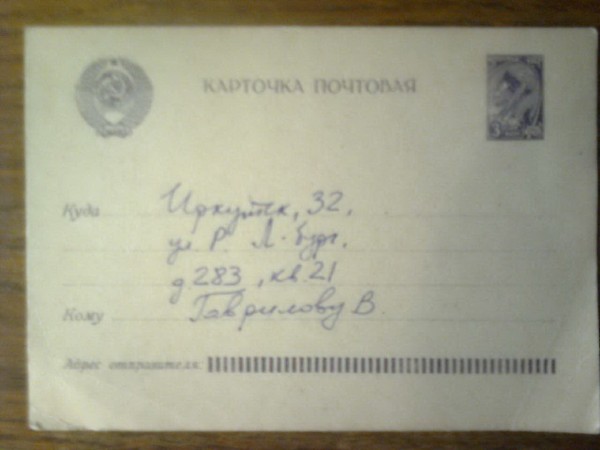 КАРТОЧКА ПОЧТОВАЯ
Куда Иркутск, 32,
ул. Р. Л-бург,
д 283, кв. 21
Кому Гаврилову В.
Адрес отправителя: